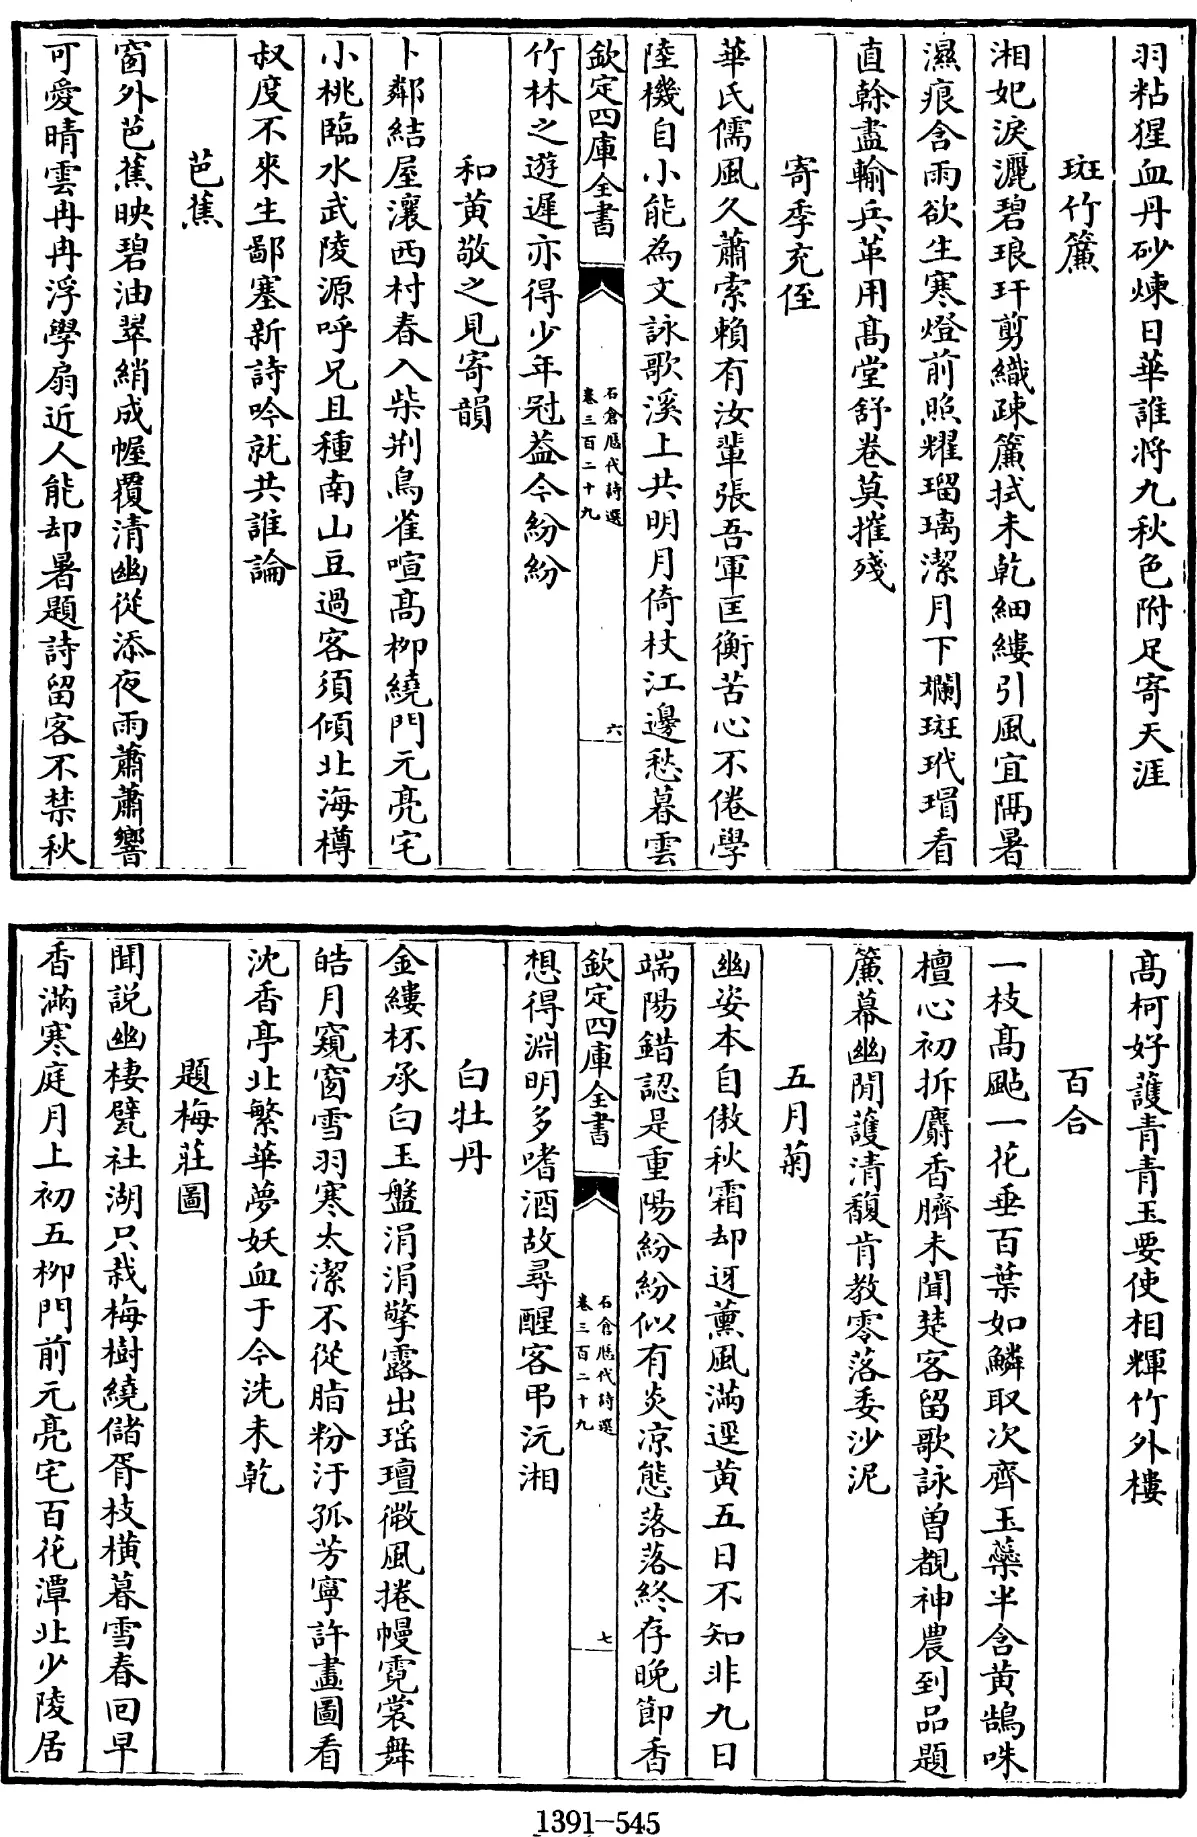 羽粘猩血丹砂煉日華誰將九秋色附足寄天涯
斑竹簾
湘妃淚灑碧琅玕剪織疎簾拭未乾細縷引風宜隔暑
濕痕含雨欲生寒燈前照耀瑠璃潔月下斕斑玳瑁看
直榦盡輸兵革用髙堂舒卷莫摧殘
寄季充侄
華氏儒風久蕭索賴有汝輩張吾軍匡衡苦心不倦學
陸機自小能為文詠歌溪上共明月倚杖江邊愁暮雲
欽定四庫全書
石倉歷代詩選
卷三百二十九
六
竹林之遊遲亦得少年冠葢今紛紛
和黄敬之見寄韻
卜鄰結屋瀼西村春入柴荆鳥雀喧髙栁繞門元亮宅
小桃臨水武陵源呼兄且種南山豆過客須傾北海樽
叔度不來生鄙塞新詩吟就共誰論
芭蕉
窗外芭蕉映碧油翠綃成幄覆清幽從添夜雨蕭蕭響
可愛晴雲冉冉浮學扇近人能却暑題詩留客不禁秋
髙柯好護青青玉要使相輝竹外樓
百合
一枝髙颭一花垂百葉如鱗取次齊玉蘂半含黄鵠咮
檀心初拆麝香臍未聞楚客留歌詠曽覩神農到品題
簾幕幽閒護清馥肯教零落委沙泥
五月菊
幽姿本自傲秋霜却迓薫風滿逕黄五日不知非九日
端陽錯認是重陽紛紛似有炎凉態落落終存晚節香
欽定四庫全書
石倉歷代詩選
卷三百二十九
七
想得淵明多嗜酒故尋醒客弔沅湘
白牡丹
金縷杯承白玉盤涓涓擎露出瑶壇微風捲幔霓裳舞
皓月窺窗雪羽寒太潔不從脂粉汙孤芳寧許畫圖看
沈香亭北繁華夢妖血于今洗未乾
題梅莊圖
聞説幽棲甓社湖只栽梅樹繞儲胥枝橫暮雪春回早
香滿寒庭月上初五栁門前元亮宅百花潭北少陵居
1391-545